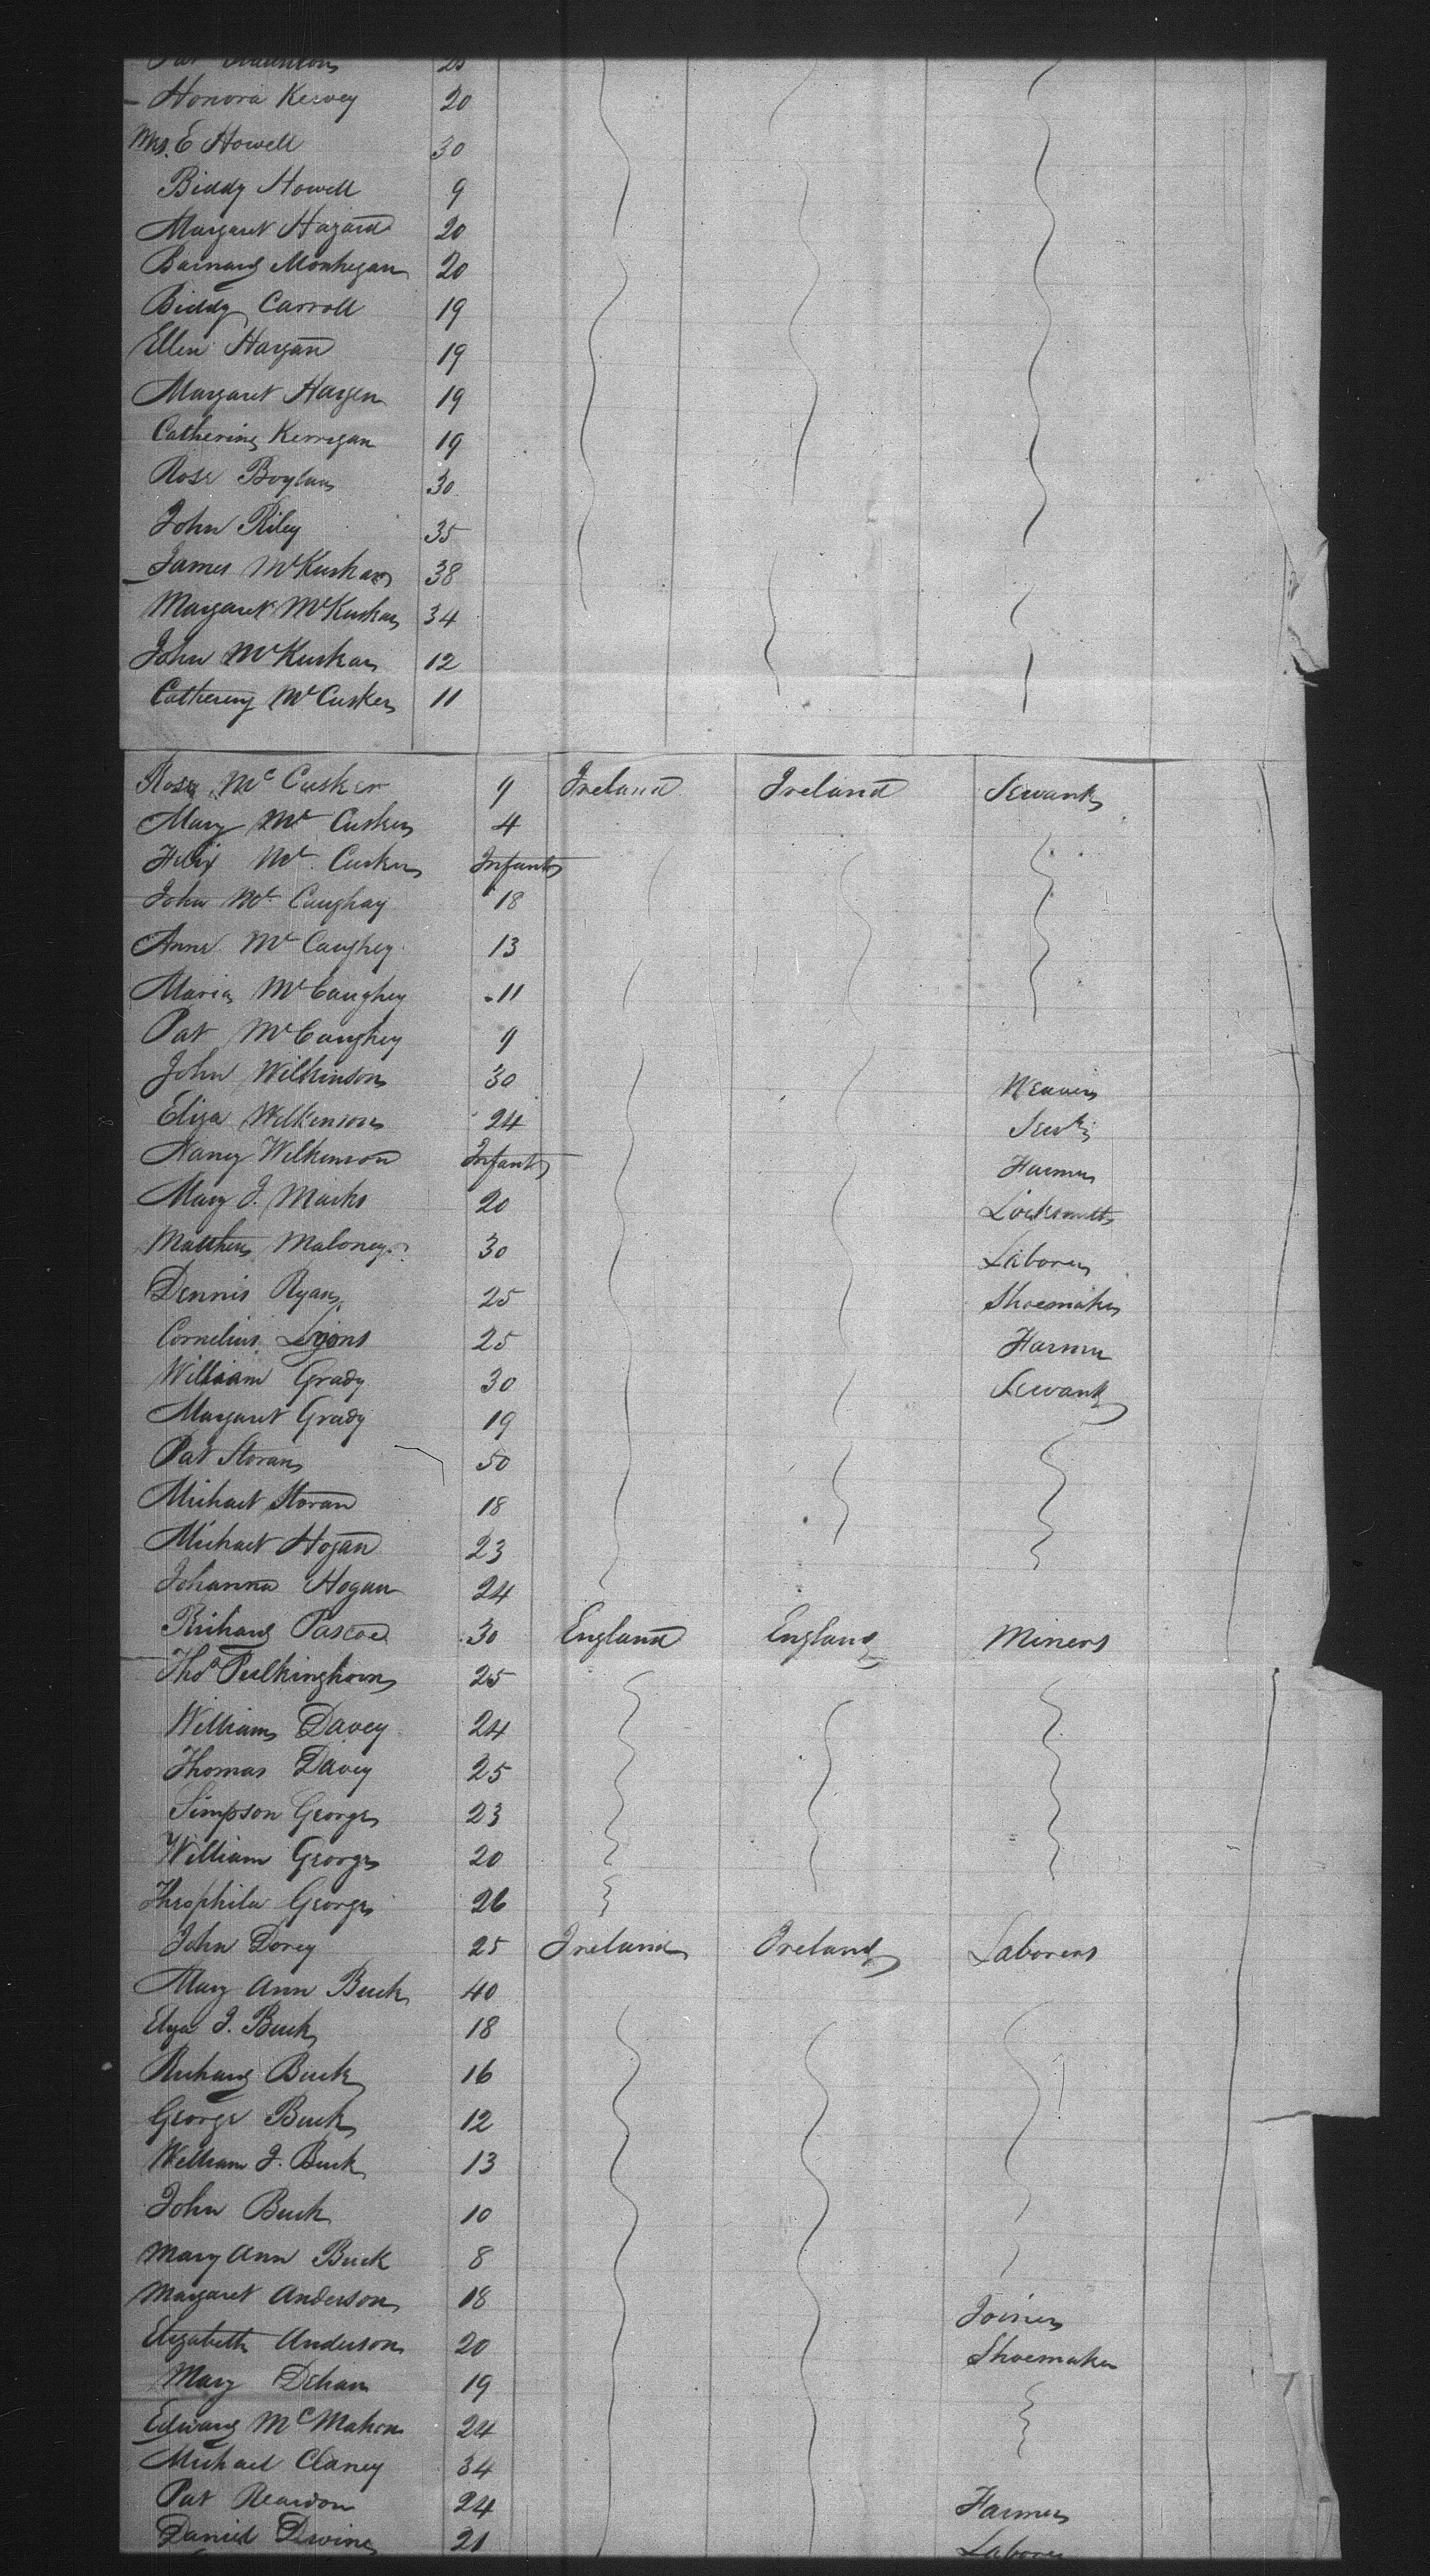 Honora Kervey 20
Mrs. E Howell 30
Biddy Howell 9
Margaret Hazard 20
Barnard Monhegan 20
Biddy Carroll 19
Ellen Hargan 19
Margaret Hargen 19
Catherine Kerrigan 19
Rose Boylan 30
John Riley 35
James McKuskar 38
Margaret McKuskar 34
John McKuskar 12
Catherine McCusker 11
Rose McCusker 9 Ireland Ireland Servants
Mary McCusker 4
Felix McCusker Infant
John McCaughay 18
Anne McCaughey 13
Maria McCaughey 11
Pat McCaughey 9
John Wilkinson 30 Weaver
Eliza Wilkinson 24 Servts
Nancy Wilkinson Infant Farmer
Mary J. Marks 20 Locksmith
Matthew Maloney 30 Laborer
Dennis Ryan 25 Shoemaker
Cornelius Lyons 25 Farmer
William Grady 30 Servants
Margaret Grady 19
Pat Storan 50
Michael Storan 18
Michael Hogan 23
Johanna Hogan 24
Richard Pascoe 30 England England Miners
Thos Pulkinghorn 25
William Davey 24
Thomas Davey 25
Simpson George 23
William George 20
Theophila George 26
John Dorey 25 Ireland Ireland Laborers
Mary Ann Buck 40
Eliza J. Buck 18
Richard Buck 16
George Buck 12
William J. Buck 13
John Buck 10
Mary Ann Buck 8
Margaret Anderson 18 Joiner
Elizabeth Anderson 20 Shoemaker
Mary Dehan 19
Edward McMahon 24
Michael Claney 34
Pat Reardon 24 Farmer
Daniel Devine 21 Laborer